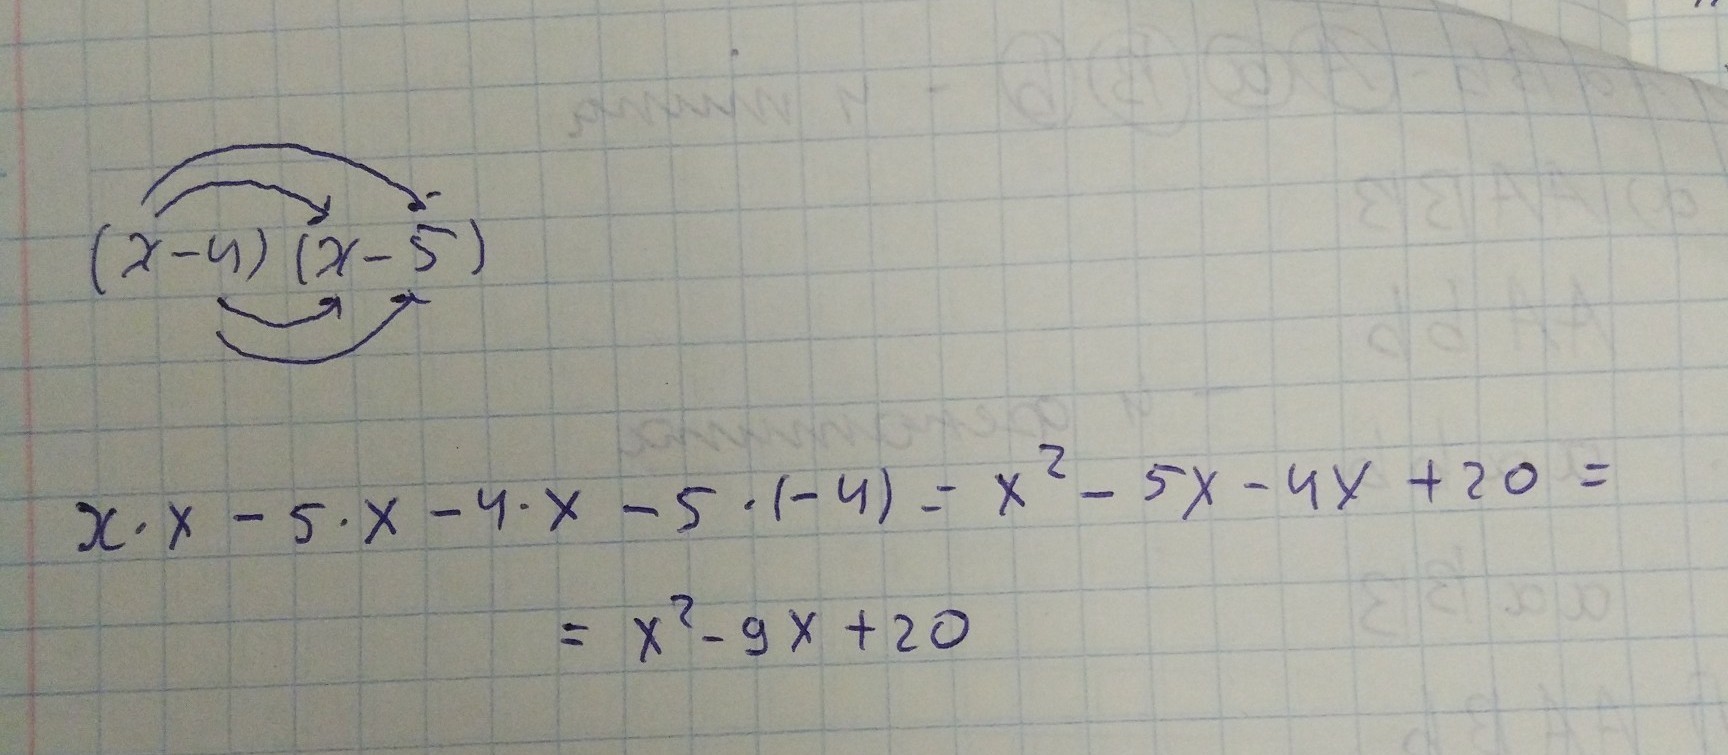 (x-4)(x-5)
x·x-5·x-4·x-5·(-4)=x²-5x-4x+20=
=x²-9x+20